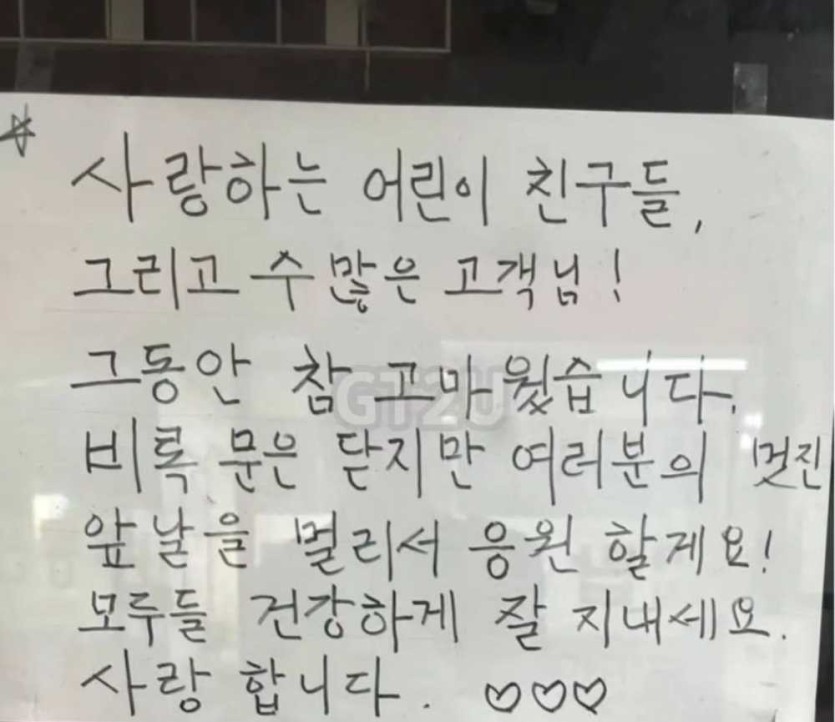 ☆ 사랑하는 어린이 친구들,
그리고 수많은 고객님!
그동안 참 고마웠습니다.
비록 문은 닫지만 여러분의 멋진
앞날을 멀리서 응원 할게요!
모두들 건강하게 잘 지내세요.
사랑 합니다. ♡♡♡
GT2U